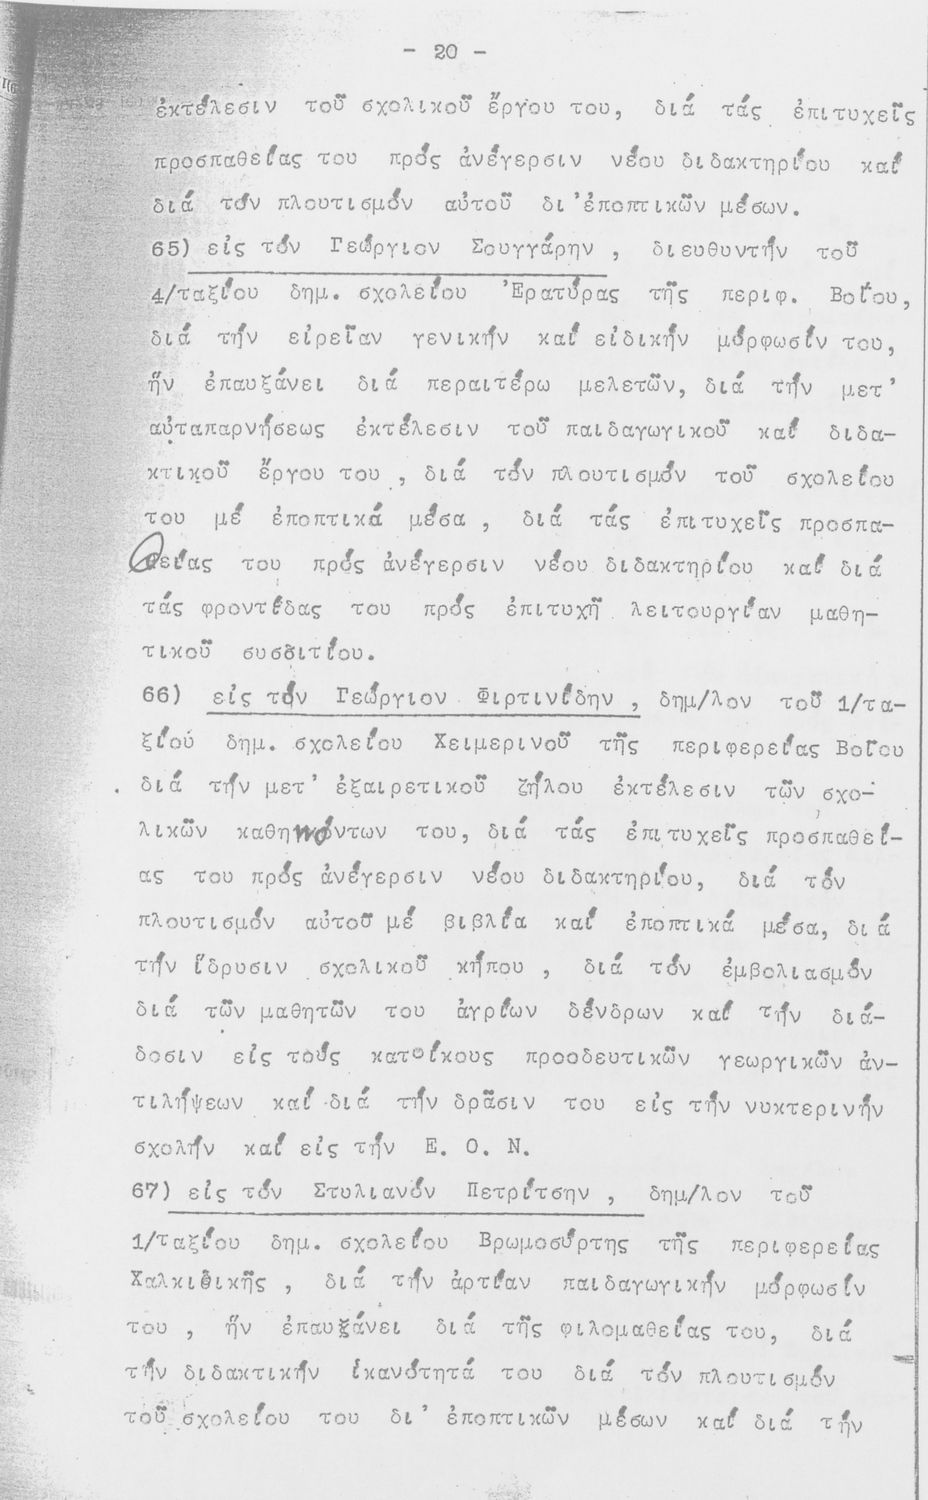 - 20 -
ἐκτέλεσιν τοῦ σχολικοῦ ἔργου του, διά τάς ἐπιτυχεῖς
προσπαθείας του πρός ἀνέγερσιν νέου διδακτηρίου καί
διά τόν πλουτισμόν αὐτοῦ δι'ἐποπτικῶν μέσων.
65) εἰς τόν Γεώργιον Σουγγάρην , διευθυντήν τοῦ
4/ταξίου δημ. σχολείου 'Ερατύρας τῆς περιφ. Βοΐου,
διά τήν εὐρεῖαν γενικήν καί εἰδικήν μόρφωσίν του,
ἥν ἐπαυξάνει διά περαιτέρω μελετῶν, διά τήν μετ'
αὐταπαρνήσεως ἐκτέλεσιν τοῦ παιδαγωγικοῦ καί διδα-
κτικοῦ ἔργου του , διά τόν πλουτισμόν τοῦ σχολείου
του μέ ἐποπτικά μέσα , διά τάς ἐπιτυχεῖς προσπα-
θείας του πρός ἀνέγερσιν νέου διδακτηρίου καί διά
τάς φροντίδας του πρός ἐπιτυχῆ λειτουργίαν μαθη-
τικοῦ συσσιτίου.
66) εἰς τόν Γεώργιον Φιρτινίδην , δημ/λον τοῦ 1/τα-
ξίου δημ. σχολείου Χειμερινοῦ τῆς περιφερείας Βοΐου
διά τήν μετ' ἐξαιρετικοῦ ζήλου ἐκτέλεσιν τῶν σχο-
λικῶν καθηκόντων του, διά τάς ἐπιτυχεῖς προσπαθεί-
ας του πρός ἀνέγερσιν νέου διδακτηρίου, διά τόν
πλουτισμόν αὐτοῦ μέ βιβλία καί ἐποπτικά μέσα, διά
τήν ἵδρυσιν σχολικοῦ κήπου , διά τόν ἐμβολιασμόν
διά τῶν μαθητῶν του ἀγρίων δένδρων καί τήν διά-
δοσιν εἰς τούς κατοίκους προοδευτικῶν γεωργικῶν ἀν-
τιλήψεων καί διά τήν δρᾶσιν του εἰς τήν νυκτερινήν
σχολήν καί εἰς τήν Ε. Ο. Ν.
67) εἰς τόν Στυλιανόν Πετρίτσην , δημ/λον τοῦ
1/ταξίου δημ. σχολείου Βρωμοσύρτης τῆς περιφερείας
Χαλκιδικῆς , διά τήν ἀρτίαν παιδαγωγικήν μόρφωσίν
του , ἥν ἐπαυξάνει διά τῆς φιλομαθείας του, διά
τήν διδακτικήν ἱκανότητά του διά τόν πλουτισμόν
τοῦ σχολείου του δι' ἐποπτικῶν μέσων καί διά τήν